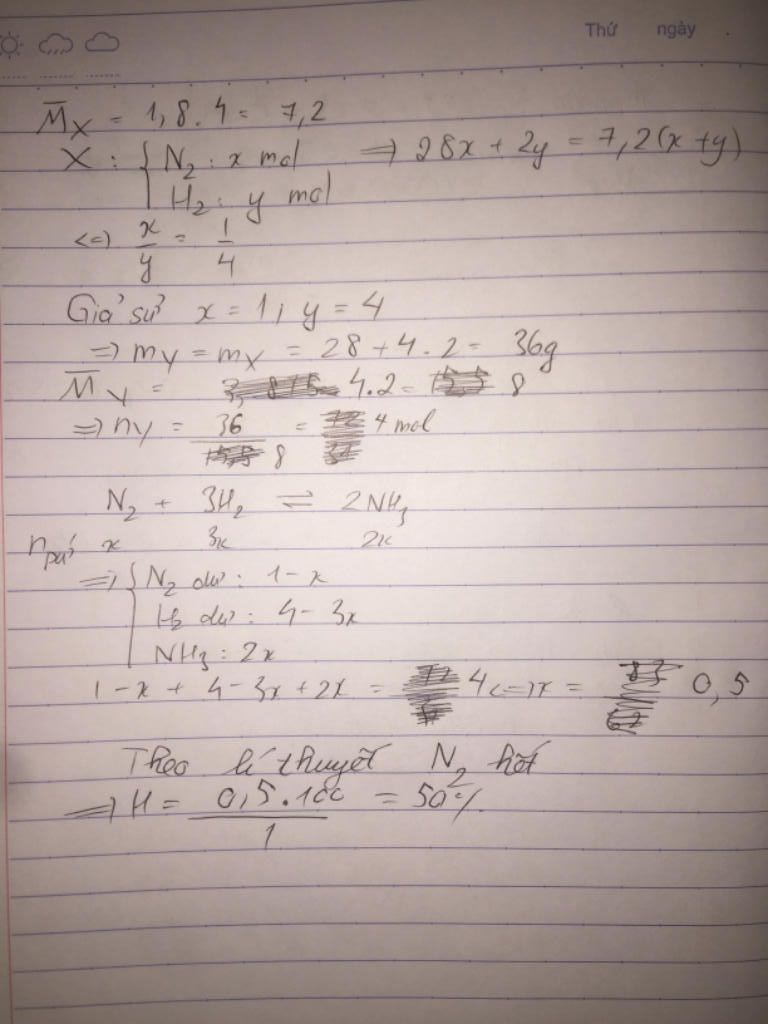 Thứ ngày
M̅x = 1,8.4 = 7,2
X : { N2 : x mol ⇒ 28x + 2y = 7,2(x+y)
H2 : y mol
<=> x/y = 1/4
Giả sử x = 1 ; y = 4
⇒ my = mx = 28 + 4.2 = 36g
M̅y = 4.2 = 8
⇒ ny = 36/8 = 4 mol
N2 + 3H2 ⇌ 2NH3
npứ x 3x 2x
⇒ { N2 dư : 1-x
H2 dư : 4-3x
NH3 : 2x
1-x + 4-3x+2x = 4 <=> x = 0,5
Theo lí thuyết N2 hết
⇒ H = 0,5.100/1 = 50%